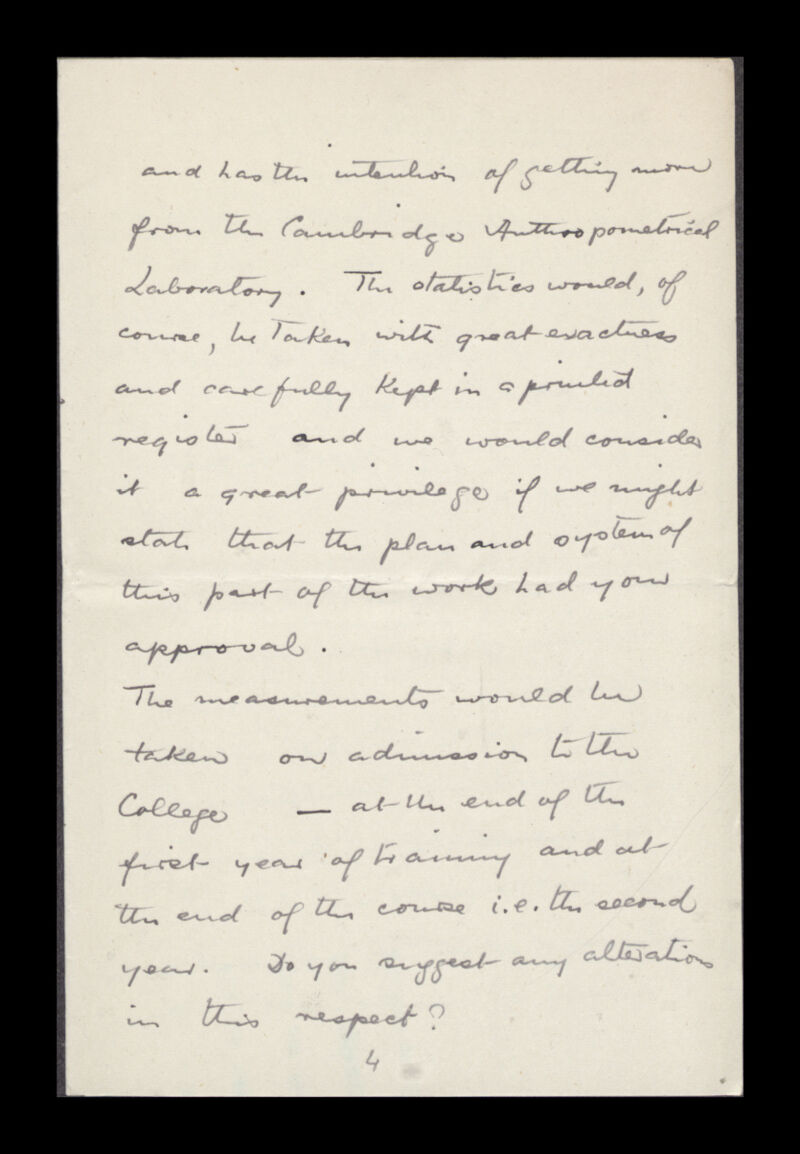 and has the intention of getting more
from the Cambridge Anthropometrical
Laboratory. The statistics would, of
course, be taken with great exactness
and carefully kept in a printed
register and we would consider
it a great privilege if we might
state that the plan and system of
this part of the work had your
approval.
The measurements would be
taken on admission to the
College — at the end of the
first year of training and at
the end of the course i.e. the second
year. Do you suggest any alterations
in this respect?
4